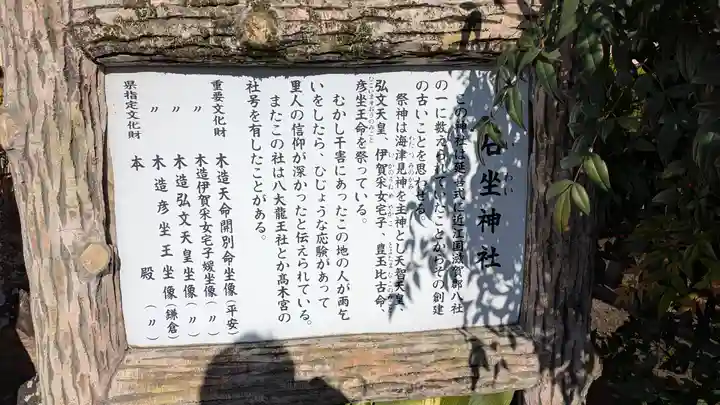 石坐神社
わい
この神社は延喜式に近江国滋賀郡八社
の一に数えられていたことからその創建
の古いことを思わせる。
祭神は海津見神を主神とし天智天皇、
わたつみのかみ
弘文天皇、伊賀采女宅子、豊玉比古命、
彦坐王命を祭っている。
ひこいますおうのみこと
むかし干害にあったこの地の人が雨乞
いをしたら、ひじょうな応験があって
里人の信仰が深かったと伝えられている。
またこの社は八大龍王社とか高木宮の
社号を有したことがある。
重要文化財 木造天命開別命坐像(平安)
〃 木造伊賀采女宅子媛坐像(〃)
〃 木造弘文天皇坐像(〃)
〃 木造彦坐王坐像(鎌倉)
県指定文化財 本殿(〃)